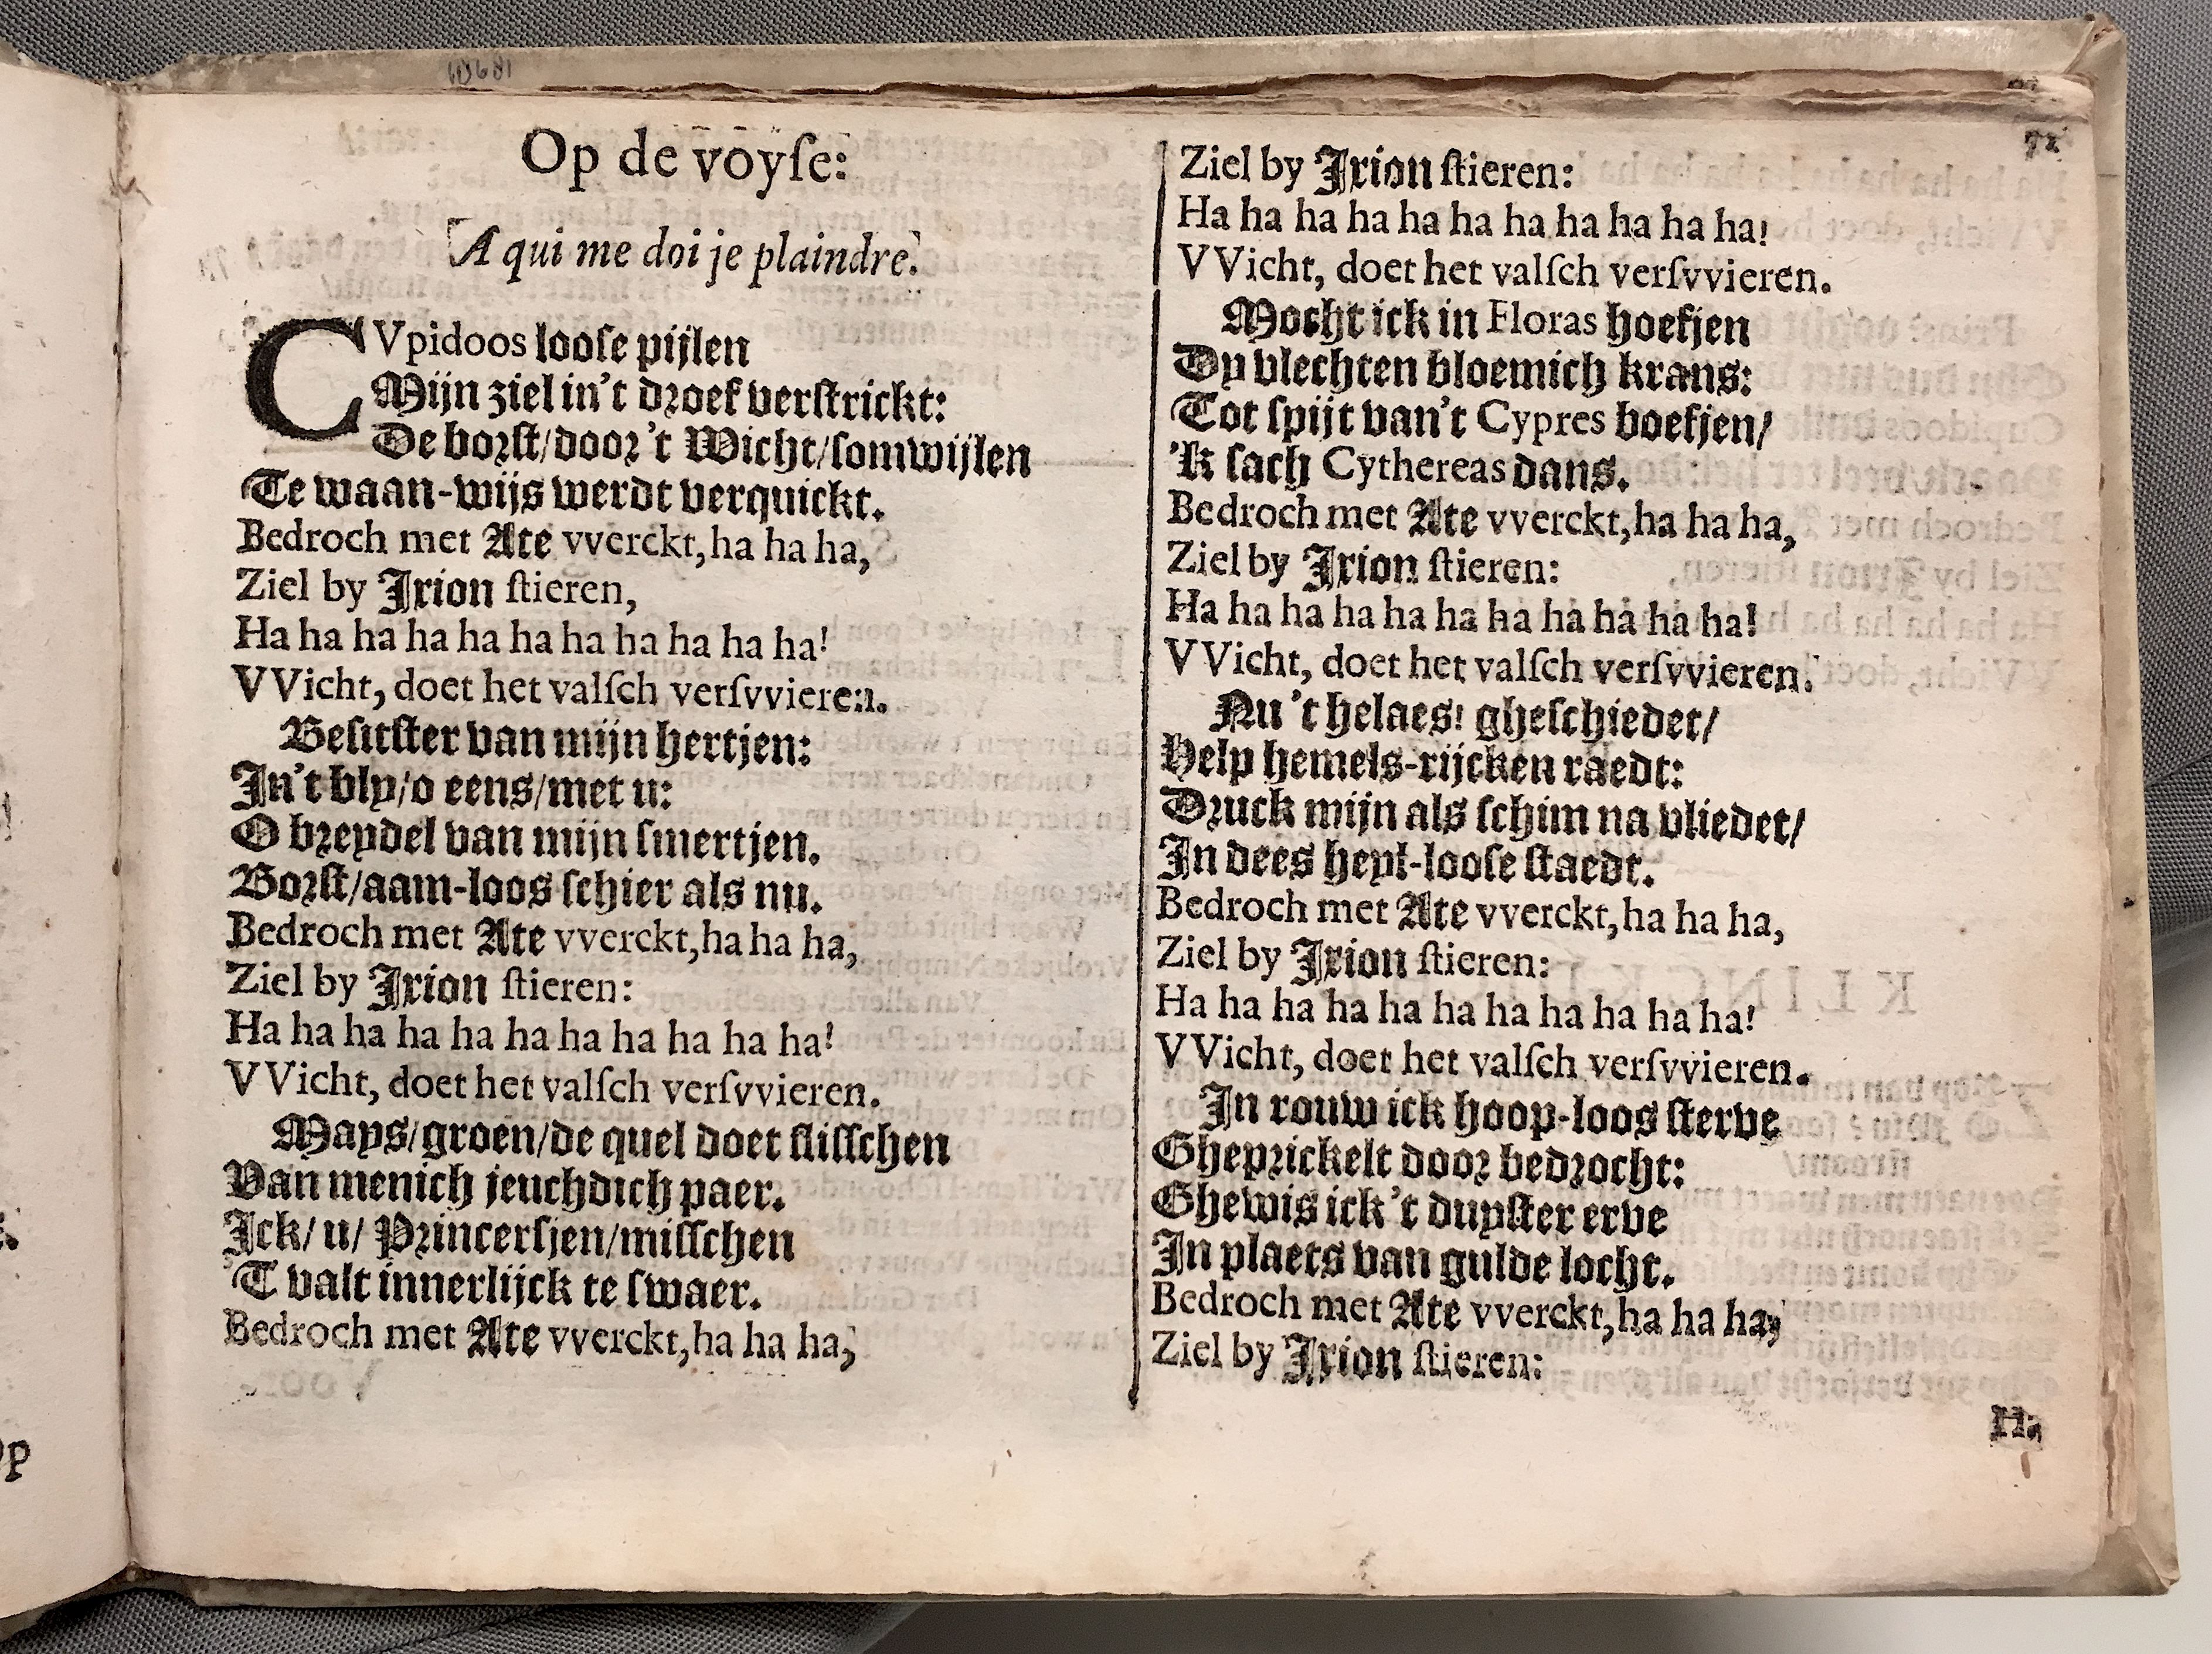 Op de voyſe:
A qui me doi je plaindre.
CVpidoos looſe pijlen
Mijn ziel in't droef verſtrickt:
De borſt/door 't Wicht/ſomwijlen
Te waan-wijs werdt verquickt.
Bedroch met Ate vverckt, ha ha ha,
Ziel by Ixion ſtieren,
Ha ha ha ha ha ha ha ha ha ha ha!
VVicht, doet het valſch verſvvieren.
Beſitſter van mijn hertjen:
In't bly/o eens/met u:
O breydel van mijn ſmertjen.
Borſt/aam-loos ſchier als nu.
Bedroch met Ate vverckt, ha ha ha,
Ziel by Ixion ſtieren:
Ha ha ha ha ha ha ha ha ha ha ha!
VVicht, doet het valſch verſvvieren.
Mays/groen/de quel doet ſliſſchen
Van menich jeuchdich paer.
Ick/ u/ Princerſjen/miſſchen
'T valt innerlijck te ſwaer.
Bedroch met Ate vverckt, ha ha ha,
72
Ziel by Ixion ſtieren:
Ha ha ha ha ha ha ha ha ha ha ha!
VVicht, doet het valſch verſvvieren.
Mocht ick in Floras hoefjen
Dy vlechten bloemich krans:
Tot ſpijt van't Cypres boefjen/
'K ſach Cythereas dans.
Bedroch met Ate vverckt, ha ha ha,
Ziel by Ixion ſtieren:
Ha ha ha ha ha ha ha ha ha ha ha!
VVicht, doet het valſch verſvvieren.
Nu 't helaes! gheſchiedet/
Help hemels-rijcken raedt:
Druck mijn als ſchim na vliedet/
In dees heyl-looſe ſtaedt.
Bedroch met Ate vverckt, ha ha ha,
Ziel by Ixion ſtieren:
Ha ha ha ha ha ha ha ha ha ha ha!
VVicht, doet het valſch verſvvieren.
In rouw ick hoop-loos ſterve
Gheprickelt door bedrocht:
Ghewis ick 't duyſter erve
In plaets van gulde locht.
Bedroch met Ate vverckt, ha ha ha,
Ziel by Ixion ſtieren:
Ha